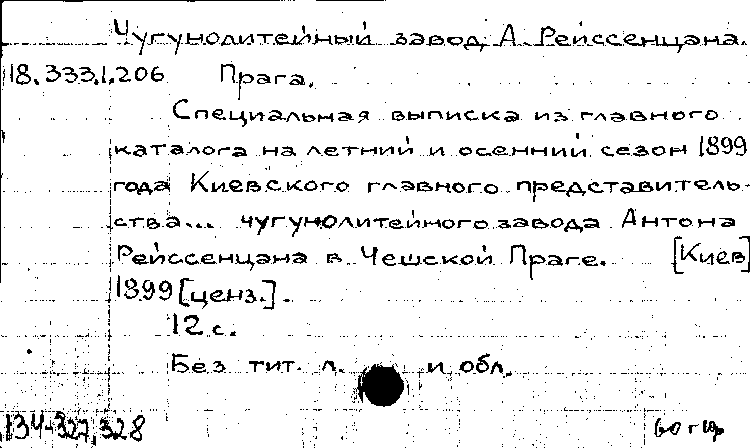 Чугунолитейный завод А. Рейссенцана.
18.333.1.206 Прага.
Специальная выписка из главного
каталога на летний и осенний сезон 1899
года Киевского главного представитель-
ства... чугунолитейного завода Антона
Рейссенцана в Чешской Праге. [Киев]
1899 [ценз.].
12 с.
Без тит. л. и обл.
134-327,328